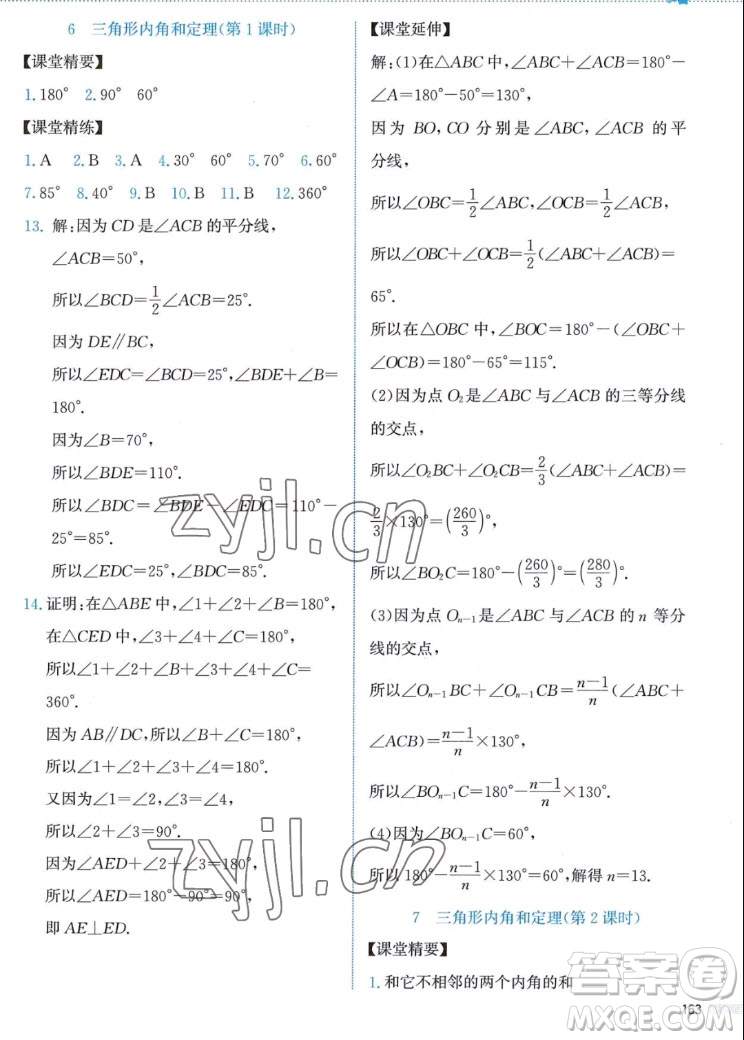 6　三角形内角和定理(第1课时)
【课堂精要】
1.180°　2.90°　60°
【课堂精练】
1.A　2.B　3.A　4.30°　60°　5.70°　6.60°
7.85°　8.40°　9.B　10.B　11.B　12.360°
13.解:因为CD是∠ACB的平分线,
∠ACB=50°,
所以∠BCD=1/2∠ACB=25°.
因为DE∥BC,
所以∠EDC=∠BCD=25°,∠BDE+∠B=
180°.
因为∠B=70°,
所以∠BDE=110°.
所以∠BDC=∠BDE-∠EDC=110°-
25°=85°.
所以∠EDC=25°,∠BDC=85°.
14.证明:在△ABE中,∠1+∠2+∠B=180°,
在△CED中,∠3+∠4+∠C=180°,
所以∠1+∠2+∠3+∠4+∠B+∠C=
360°.
因为AB∥DC,所以∠B+∠C=180°.
所以∠1+∠2+∠3+∠4=180°.
又因为∠1=∠2,∠3=∠4,
所以∠2+∠3=90°.
因为∠AED+∠2+∠3=180°,
所以∠AED=180°-90°=90°.
即AE⊥ED.
【课堂延伸】
解:(1)在△ABC中,∠ABC+∠ACB=180°-
∠A=180°-50°=130°,
因为BO,CO分别是∠ABC,∠ACB的平
分线,
所以∠OBC=1/2∠ABC,∠OCB=1/2∠ACB,
所以∠OBC+∠OCB=1/2(∠ABC+∠ACB)=
65°.
所以在△OBC中,∠BOC=180°-(∠OBC+
∠OCB)=180°-65°=115°.
(2)因为点O₂是∠ABC与∠ACB的三等分线
的交点,
所以∠O₂BC+∠O₂CB=2/3(∠ABC+∠ACB)=
2/3×130°=(260/3)°,
所以∠BO₂C=180°-(260/3)°=(280/3)°.
(3)因为点Oₙ₋₁是∠ABC与∠ACB的n等分
线的交点,
所以∠Oₙ₋₁BC+∠Oₙ₋₁CB=(n-1)/n(∠ABC+
∠ACB)=(n-1)/n×130°,
所以∠BOₙ₋₁C=180°-(n-1)/n×130°.
(4)因为∠BOₙ₋₁C=60°,
所以180°-(n-1)/n×130°=60°,解得n=13.
7　三角形内角和定理(第2课时)
【课堂精要】
1.和它不相邻的两个内角的和
163
zyjl.cn
zyjl.cn
答案圈
MXQE.COM